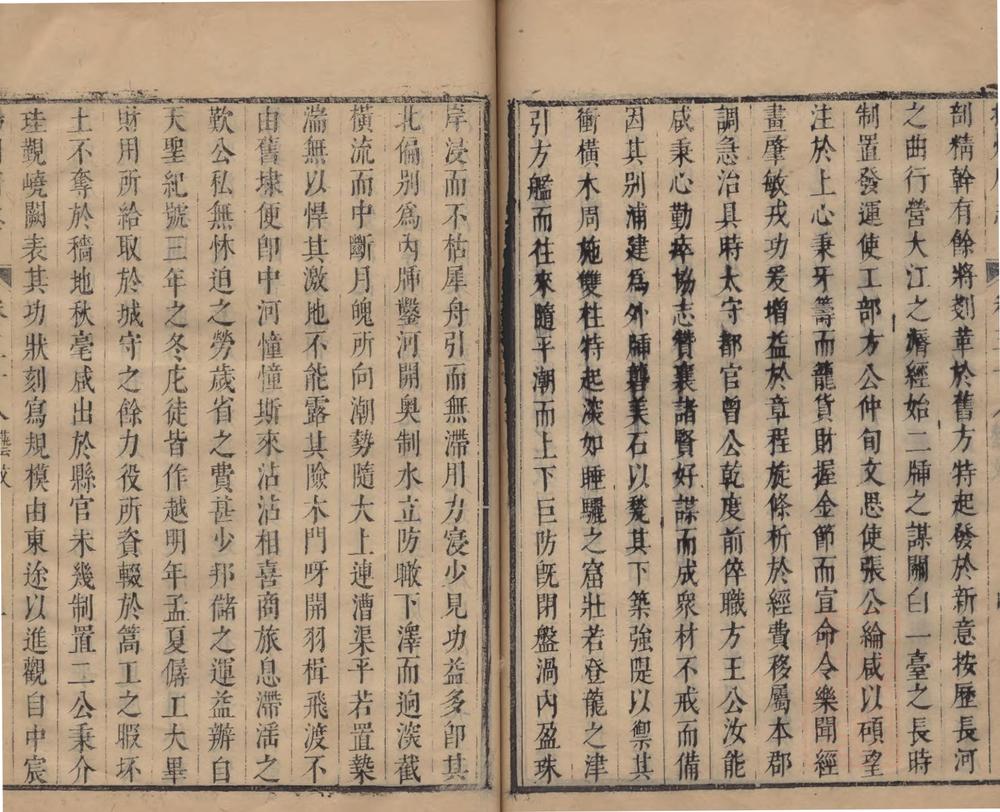 剖精幹有餘將剗革於舊方特起發於新意按歷長河
之曲行營大江之漘經始二牐之謀關白一臺之長時
制置發運使工部方公仲旬文思使張公綸咸以碩望
注於上心秉牙籌而籠貨財握金節而宣命令樂聞經
畫肇敏戎功爰增益於章程旋條析於經費移屬本郡
調急治具時太守都官曾公乾度前倅職方王公汝能
咸秉心勤瘁協志贊襄諸賢好謀而成衆材不戒而備
因其別浦建爲外牐礱美石以甃其下築強隄以禦其
衝橫木周施雙柱特起淡如睡驪之窟壯若登龍之津
引方艦而往來隨平潮而上下巨防旣閉盤渦內盈珠
岸浸而不枯犀舟引而無滯用力寖少見功益多卽其
北偏别爲內牐鑿河開奧制水立防瞰下澤而逈淡截
橫流而中斷月魄所向潮勢隨大上連漕渠平若置槷
湍無以悍其激地不能露其險木門呀開羽楫飛渡不
由舊埭便卽中河憧憧斯來沾沾相喜商旅息滯滛之
歎公私無怵迫之勞歲省之費甚少邦儲之運益辦自
天聖紀號三年之冬庀徒皆作越明年孟夏僝工大畢
財用所給取於城守之餘力役所資輟於篙工之暇坏
土不奪於穡地秋毫咸出於縣官未幾制置二公秉介
珪覲嶢闕表其功狀刻寫規模由東途以進觀自中宸